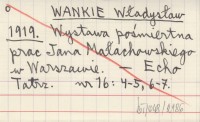 WANKIE Władysław
1919. Wystawa pośmiertna
prac Jana Małachowskiego
w Warszawie. — Echo
Tatrz. nr 16: 4-5, 6-7.